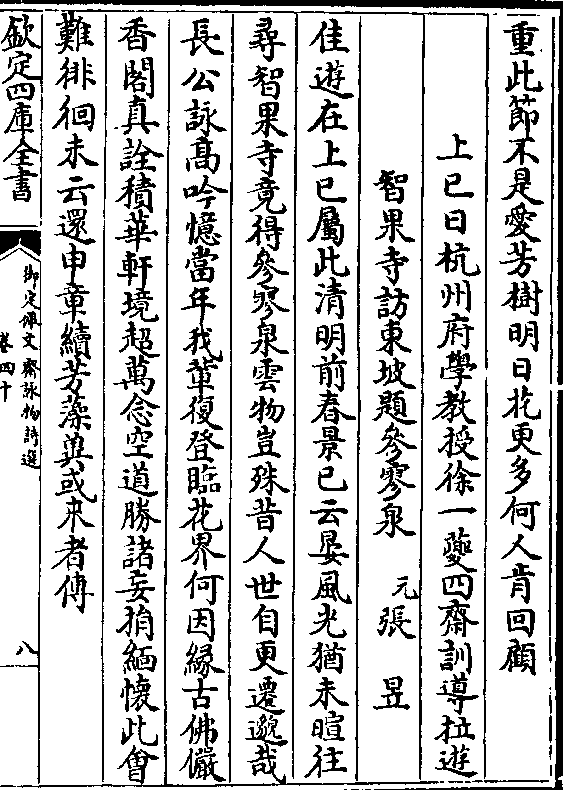 重此節不是愛芳樹明日花更多何人肯回顧
上巳日杭州府學教授徐一夔四齋訓導拉遊
智果寺訪東坡題參寥泉　元張　昱
佳遊在上巳屬此清明前春景已云晏風光猶未暄往
尋智果寺竟得參寥泉雲物豈殊昔人世自更遷邈哉
長公詠髙吟憶當年我輩復登臨花界何因縁古佛儼
香閣真詮積華軒境超萬念空道勝諸妄捐緬懷此會
難徘徊未云還申章續芳藻兾或來者傳
欽定四庫全書
御定佩文齋詠物詩選
卷四十
八